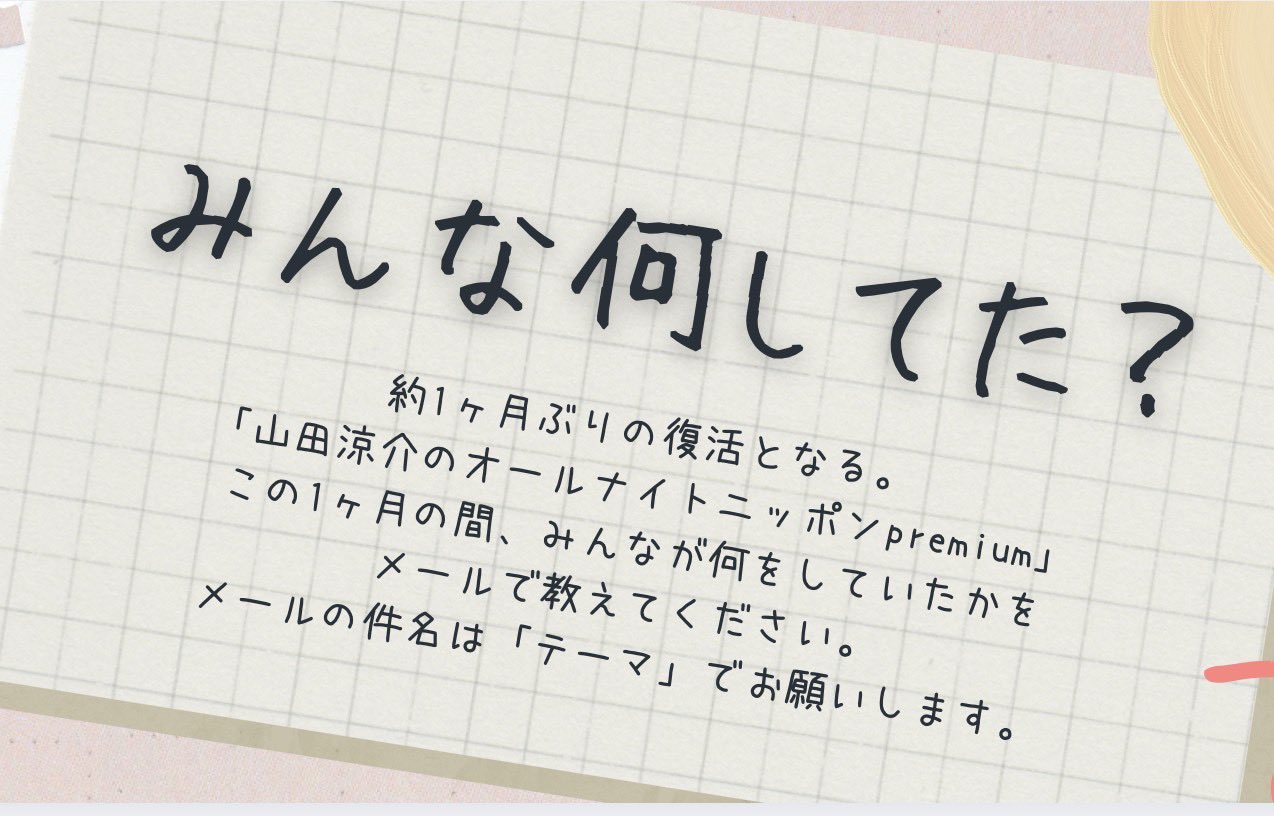 みんな何してた？
約1ヶ月ぶりの復活となる。
「山田涼介のオールナイトニッポンpremium」
この1ヶ月の間、みんなが何をしていたかを
メールで教えてください。
メールの件名は「テーマ」でお願いします。